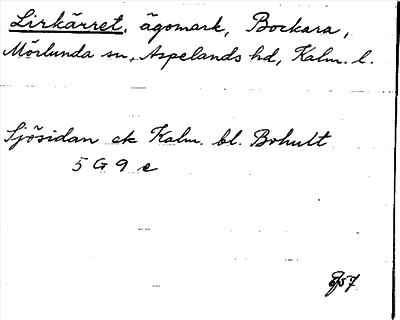 Lirkärret, ägomark, Bockara,
Mörlunda sn, Aspelands hd, Kalm. l.
Sjösidan ek Kalm. bl. Bohult
5 G 9 e
57